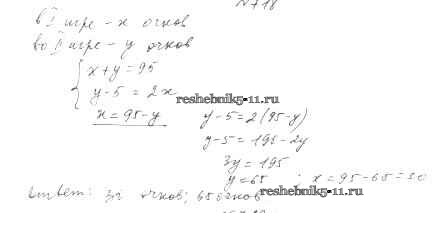 N 718
в I игре - x очков
во II игре - y очков
x + y = 95
y - 5 = 2x
reshebnik5-11.ru
x = 95 - y y - 5 = 2(95 - y)
y - 5 = 195 - 2y
3y = 195
y = 65 ; x = 95 - 65 = 30
ответ: 30 очков; 65 очков
reshebnik5-11.ru